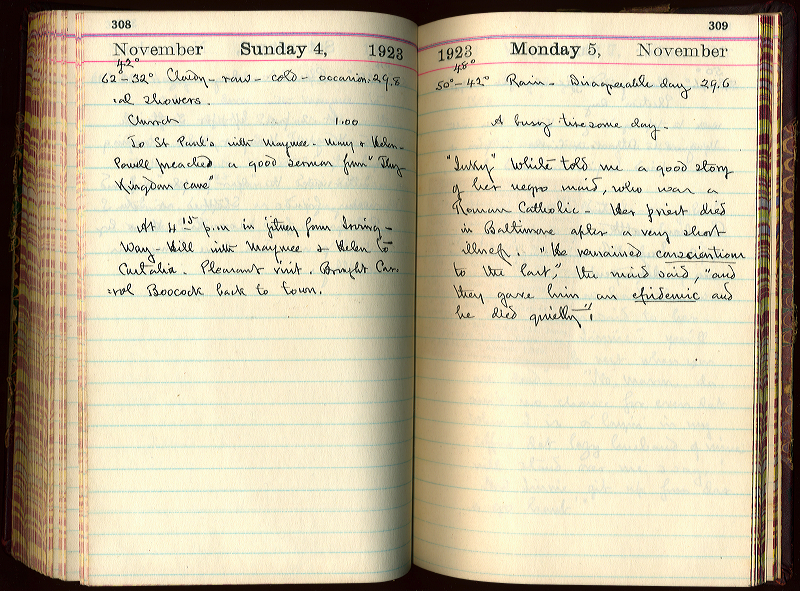 308
November Sunday 4, 1923
42°
62°-32° Cloudy - raw - cold - occasion- 29.8
al showers.
Church 1.00
To St Paul's with Maymee - Mary & Helen-
Powell preached a good sermon from "Thy
Kingdom come"
At 4 15 p.m in jitney from Irving-
Way-Hill with Maymee & Helen to
Castalia. Pleasant visit. Brought
Boocock back to town.
309
1923 Monday 5, November
48°
50°-42° Rain - Disagreeable day 29.6
A busy tiresome day.
"Inky" White told me a good story
of her negro maid, who was a
Roman Catholic - Her priest died
in Baltimore after a very short
illness. "He remained conscientious
to the last", the maid said, "and
they gave him an epidemic and
he died quietly"!